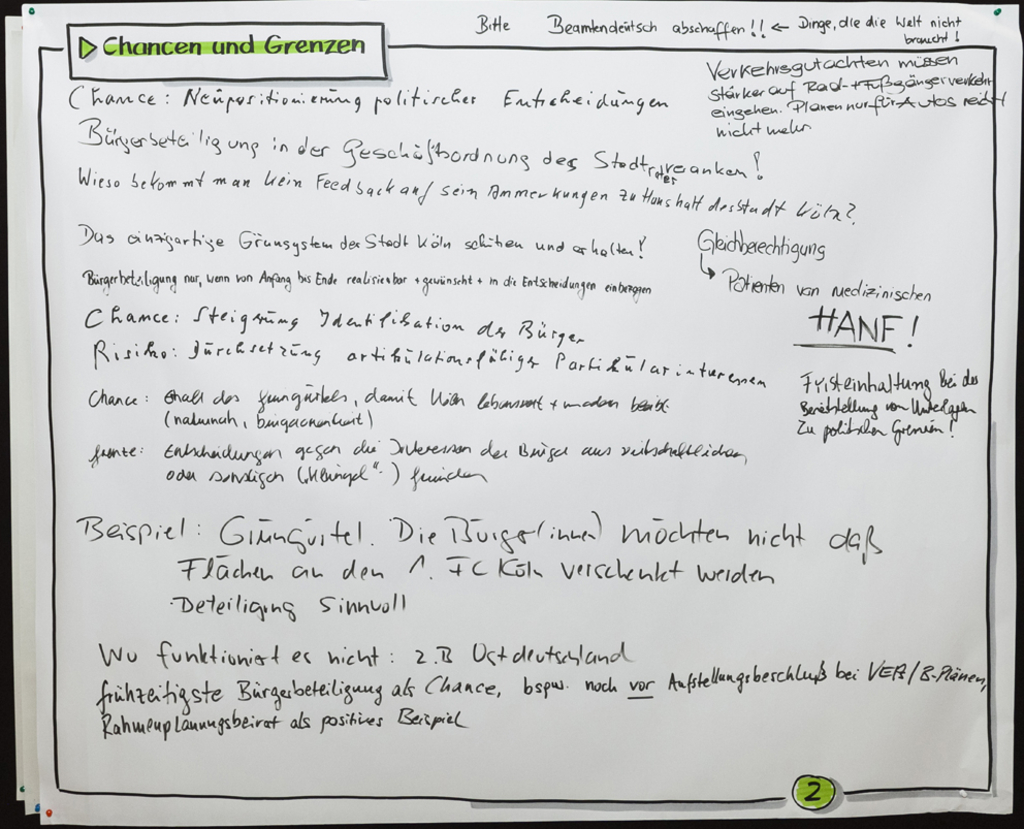 Bitte Beamtendeutsch abschaffen!! ← Dinge, die die Welt nicht
braucht!
Chancen und Grenzen
Verkehrsgutachten müssen
stärker auf Rad- + Fußgängerverkehr
eingehen. Planen nur für Autos reicht
nicht mehr.
Chance: Neupositionierung politischer Entscheidungen
Bürgerbeteiligung in der Geschäftsordnung des Stadtrates veranken!
Wieso bekommt man kein Feedback auf sein Anmerkungen zu Haushalt der Stadt Köln?
Das einzigartige Grünsystem der Stadt Köln schützen und erhalten!
Gleichberechtigung
↳ Patienten von medizinischen
HANF!
Bürgerbeteiligung nur, wenn von Anfang bis Ende realisierbar + gewünscht + in die Entscheidungen einbezogen
Chance: Steigerung Identifikation der Bürger
Risiko: Durchsetzung artikulationsfähiger Partikularinteressen
Fristeinhaltung bei der
Bereitstellung von Unterlagen
zu politischen Gremien!
Chance: Erhalt des Grüngürtels, damit Köln lebenswert + bleibt
(naturnah, )
Grenze: Entscheidungen gegen die Interessen der Bürger aus wirtschaftlichen
oder sonstigen ("Klüngel"-) Gründen
Beispiel: Grüngürtel. Die Bürger(innen) möchten nicht daß
Flächen an den 1. FC Köln verschenkt werden
Beteiligung sinnvoll
Wo funktioniert es nicht: z.B Ostdeutschland
frühzeitigste Bürgerbeteiligung als Chance, bspw. noch vor Aufstellungsbeschluß bei VEP/B-Plänen,
Rahmenplanungsbeirat als positives Beispiel
2